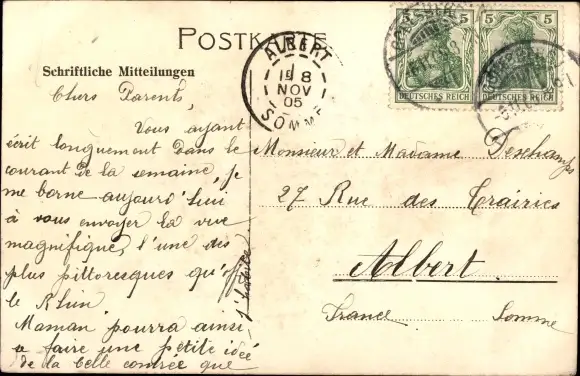 POSTKARTE
Schriftliche Mitteilungen
ALBERT
18
NOV
05
SOMME
5 5
5 5
DEUTSCHES REICH DEUTSCHES REICH
Chers Parents,
Vous ayant
écrit longuement dans le
courant de la semaine, je
me borne aujourd'hui
à vous envoyer la vue
magnifique, l'une des
plus pittoresques qu'offre
le Rhin
Maman pourra ainsi
se faire une petite idée
de la belle contrée que
j'habite
Monsieur et Madame Deschamps
27 Rue des Prairies
Albert
France Somme